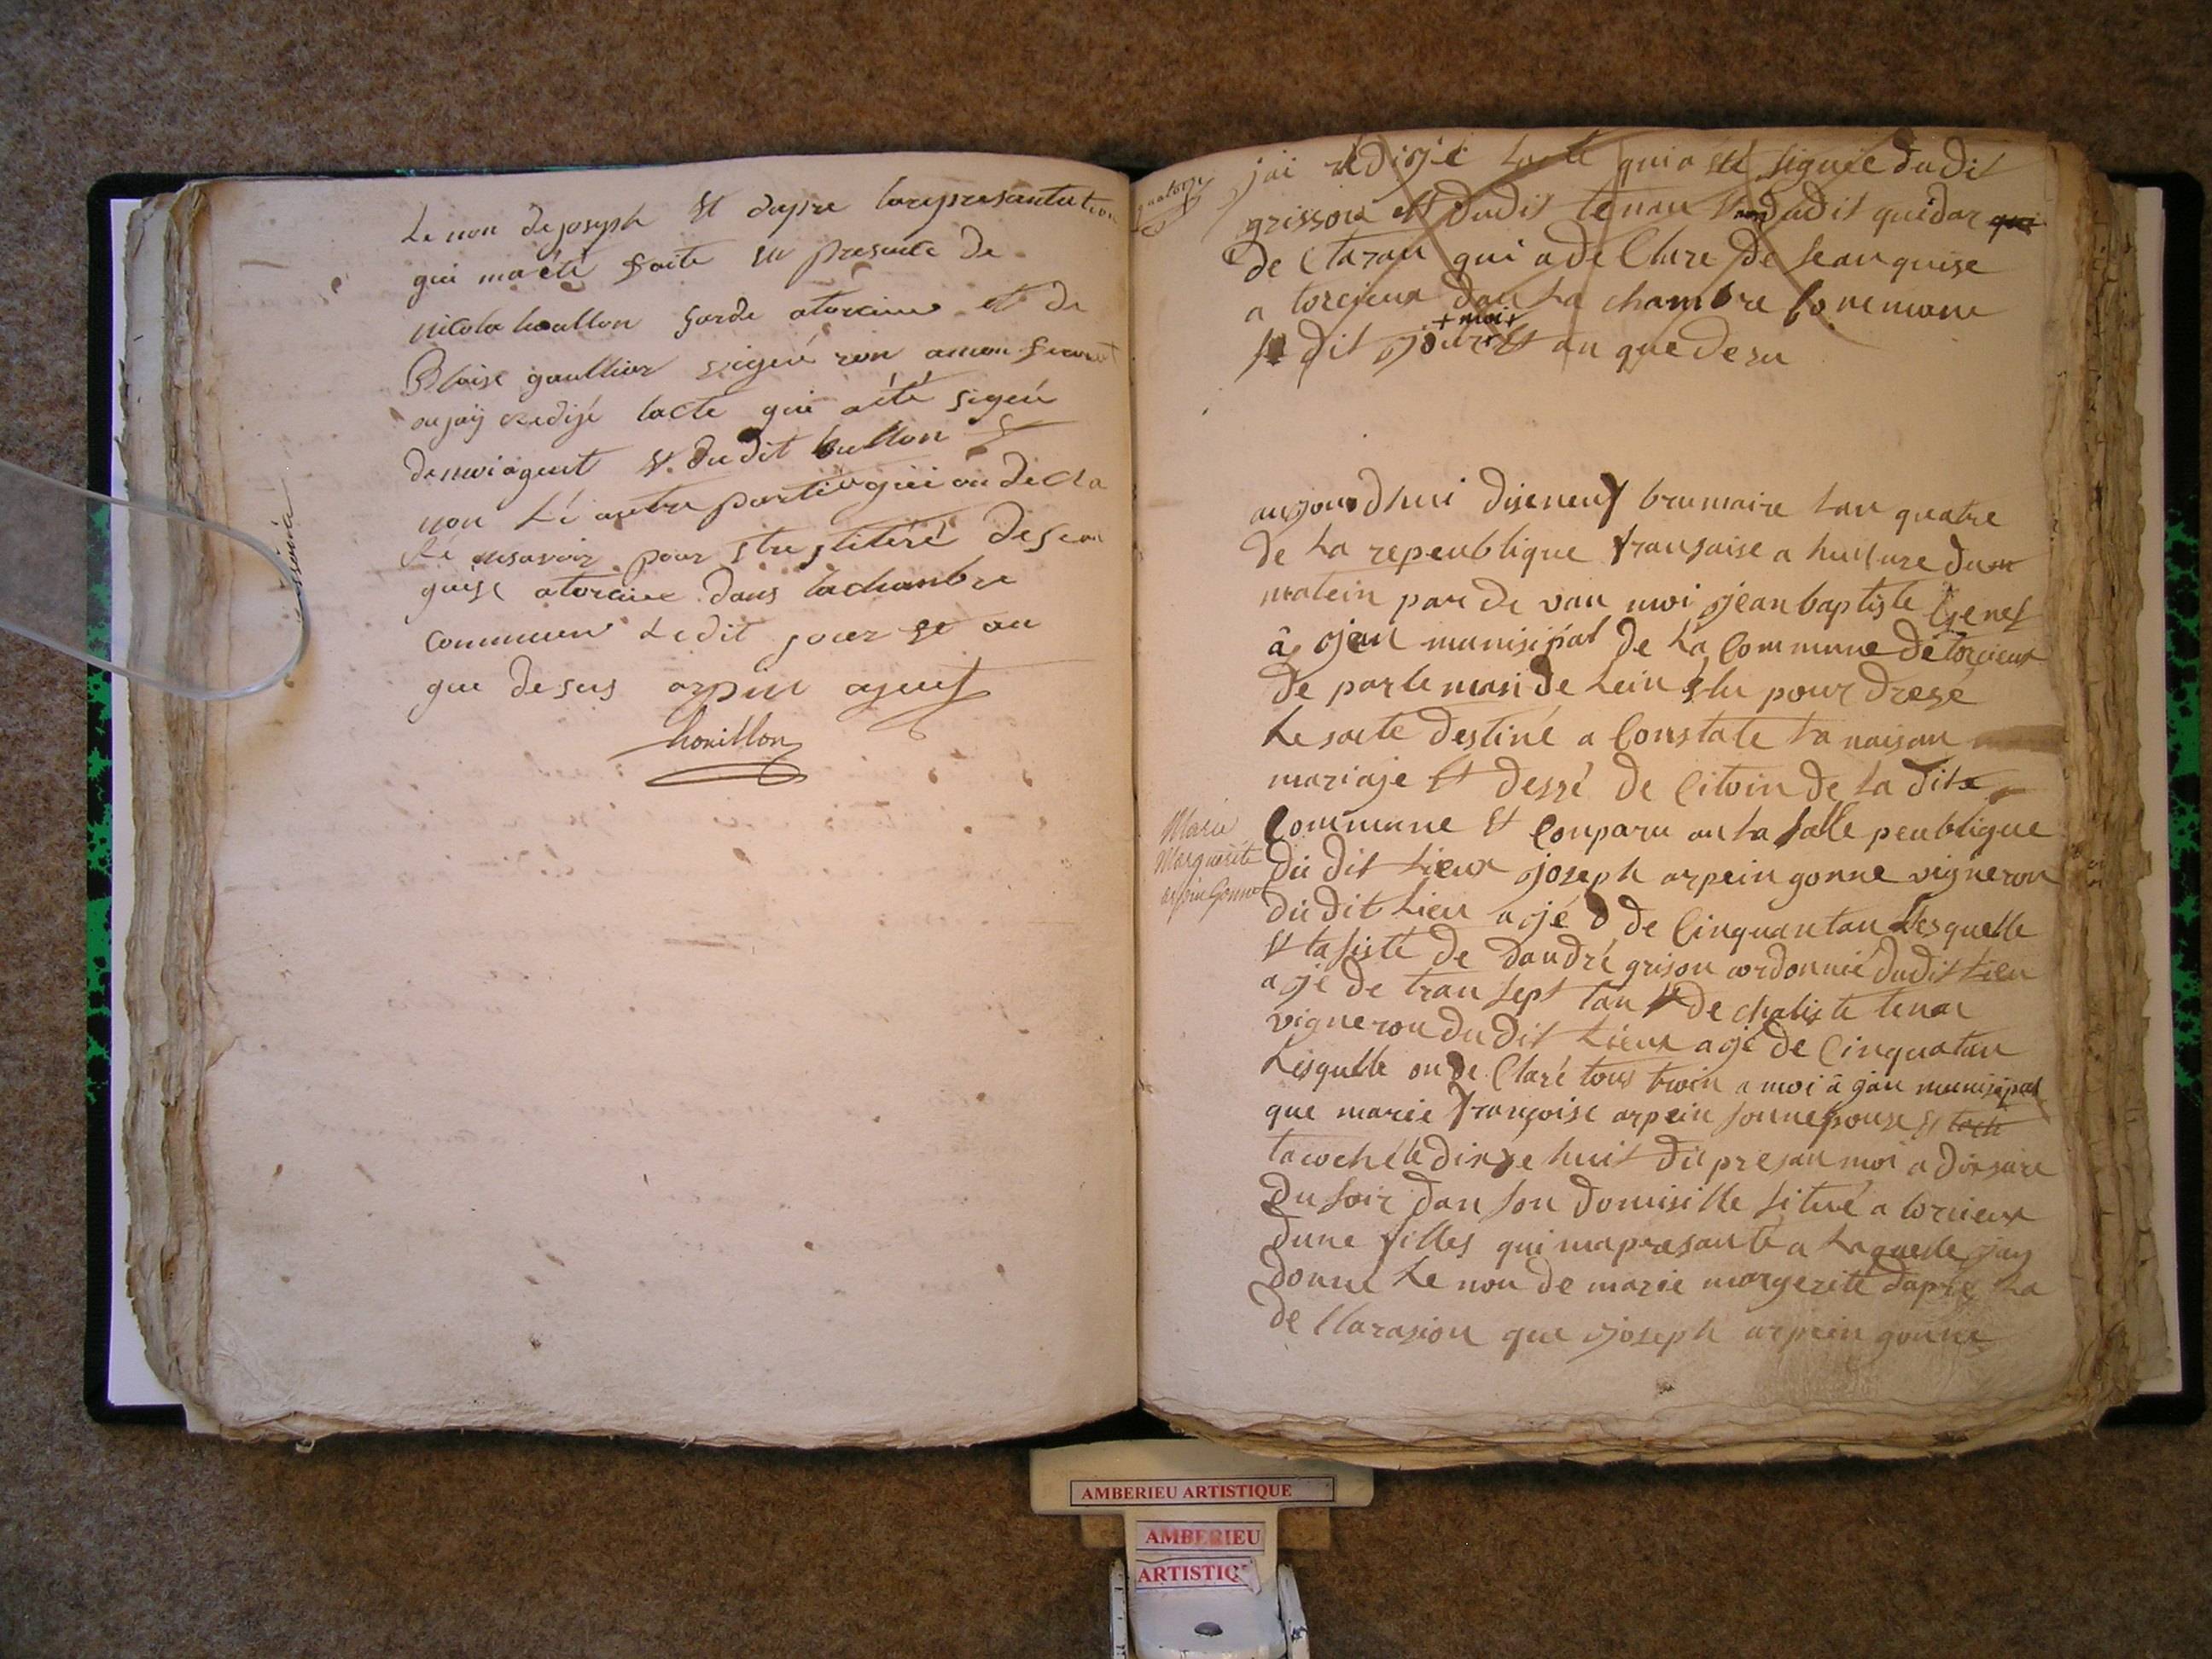 Le non de joseph Et dapre larepresantation
qui ma été faite En presante de
nicola houllon garde atorcieu et de
Blaise gaullier vigneron
ou jay Redijé lacte qui a été signé
demoi agent Et dudit hullon
non Lé autre partie qui on decla
Ré nesavoir pour Etre litéré de se en
quise atorcieu dans lachambre
commune Ledit jour Et an
que desus arpin agent
houillon
quatorze
jai redigé lacte qui a été signée dudit
grisson et dudit tenan Et non dudit quidar qui
de Claran qui a de Clare de se anquise
a torcieux dan La chambre Commune
+ moi +
le dit jour Et an que desu
aujourdhui diseneuf brumaire Lan quatre
de La repeublique fransaise a huiture du
matein par de van moi jean baptiste Genef
â jan munisipal de La Commune de torcieux
de parteman de Lein Elu pour dresé
Le sacte destiné a Constate La naisan
mariaje Et dessé de Citoin de La dite
Commune Et Conparu an La salle peublique
Marie
Marguerite
arpin Gonne
du dit Lieux joseph arpein gonne vigneron
du dit Lieu ajé d de Cinquantan Lesquelle
Et tasisté de dandré grison cordonnié dudit Lieu
ajé de tran sept tan Et de chaliste tenar
vigneron du dit Lieux ajé de Cinquatan
Lesquelle on de Claré tous troin a moi â jan munisipal
que marie françoise arpein sonnepouse Et
tacoché le dixse huit du presan moi a dixsure
du soir dan son domisille situé a torcieux
dune filles qui mapresanté a Laquelle jay
donné Le non de marie margerite dapre La
de Clarasion que joseph arpein gonne
AMBERIEU ARTISTIQUE
AMBERIEU
ARTISTIQ